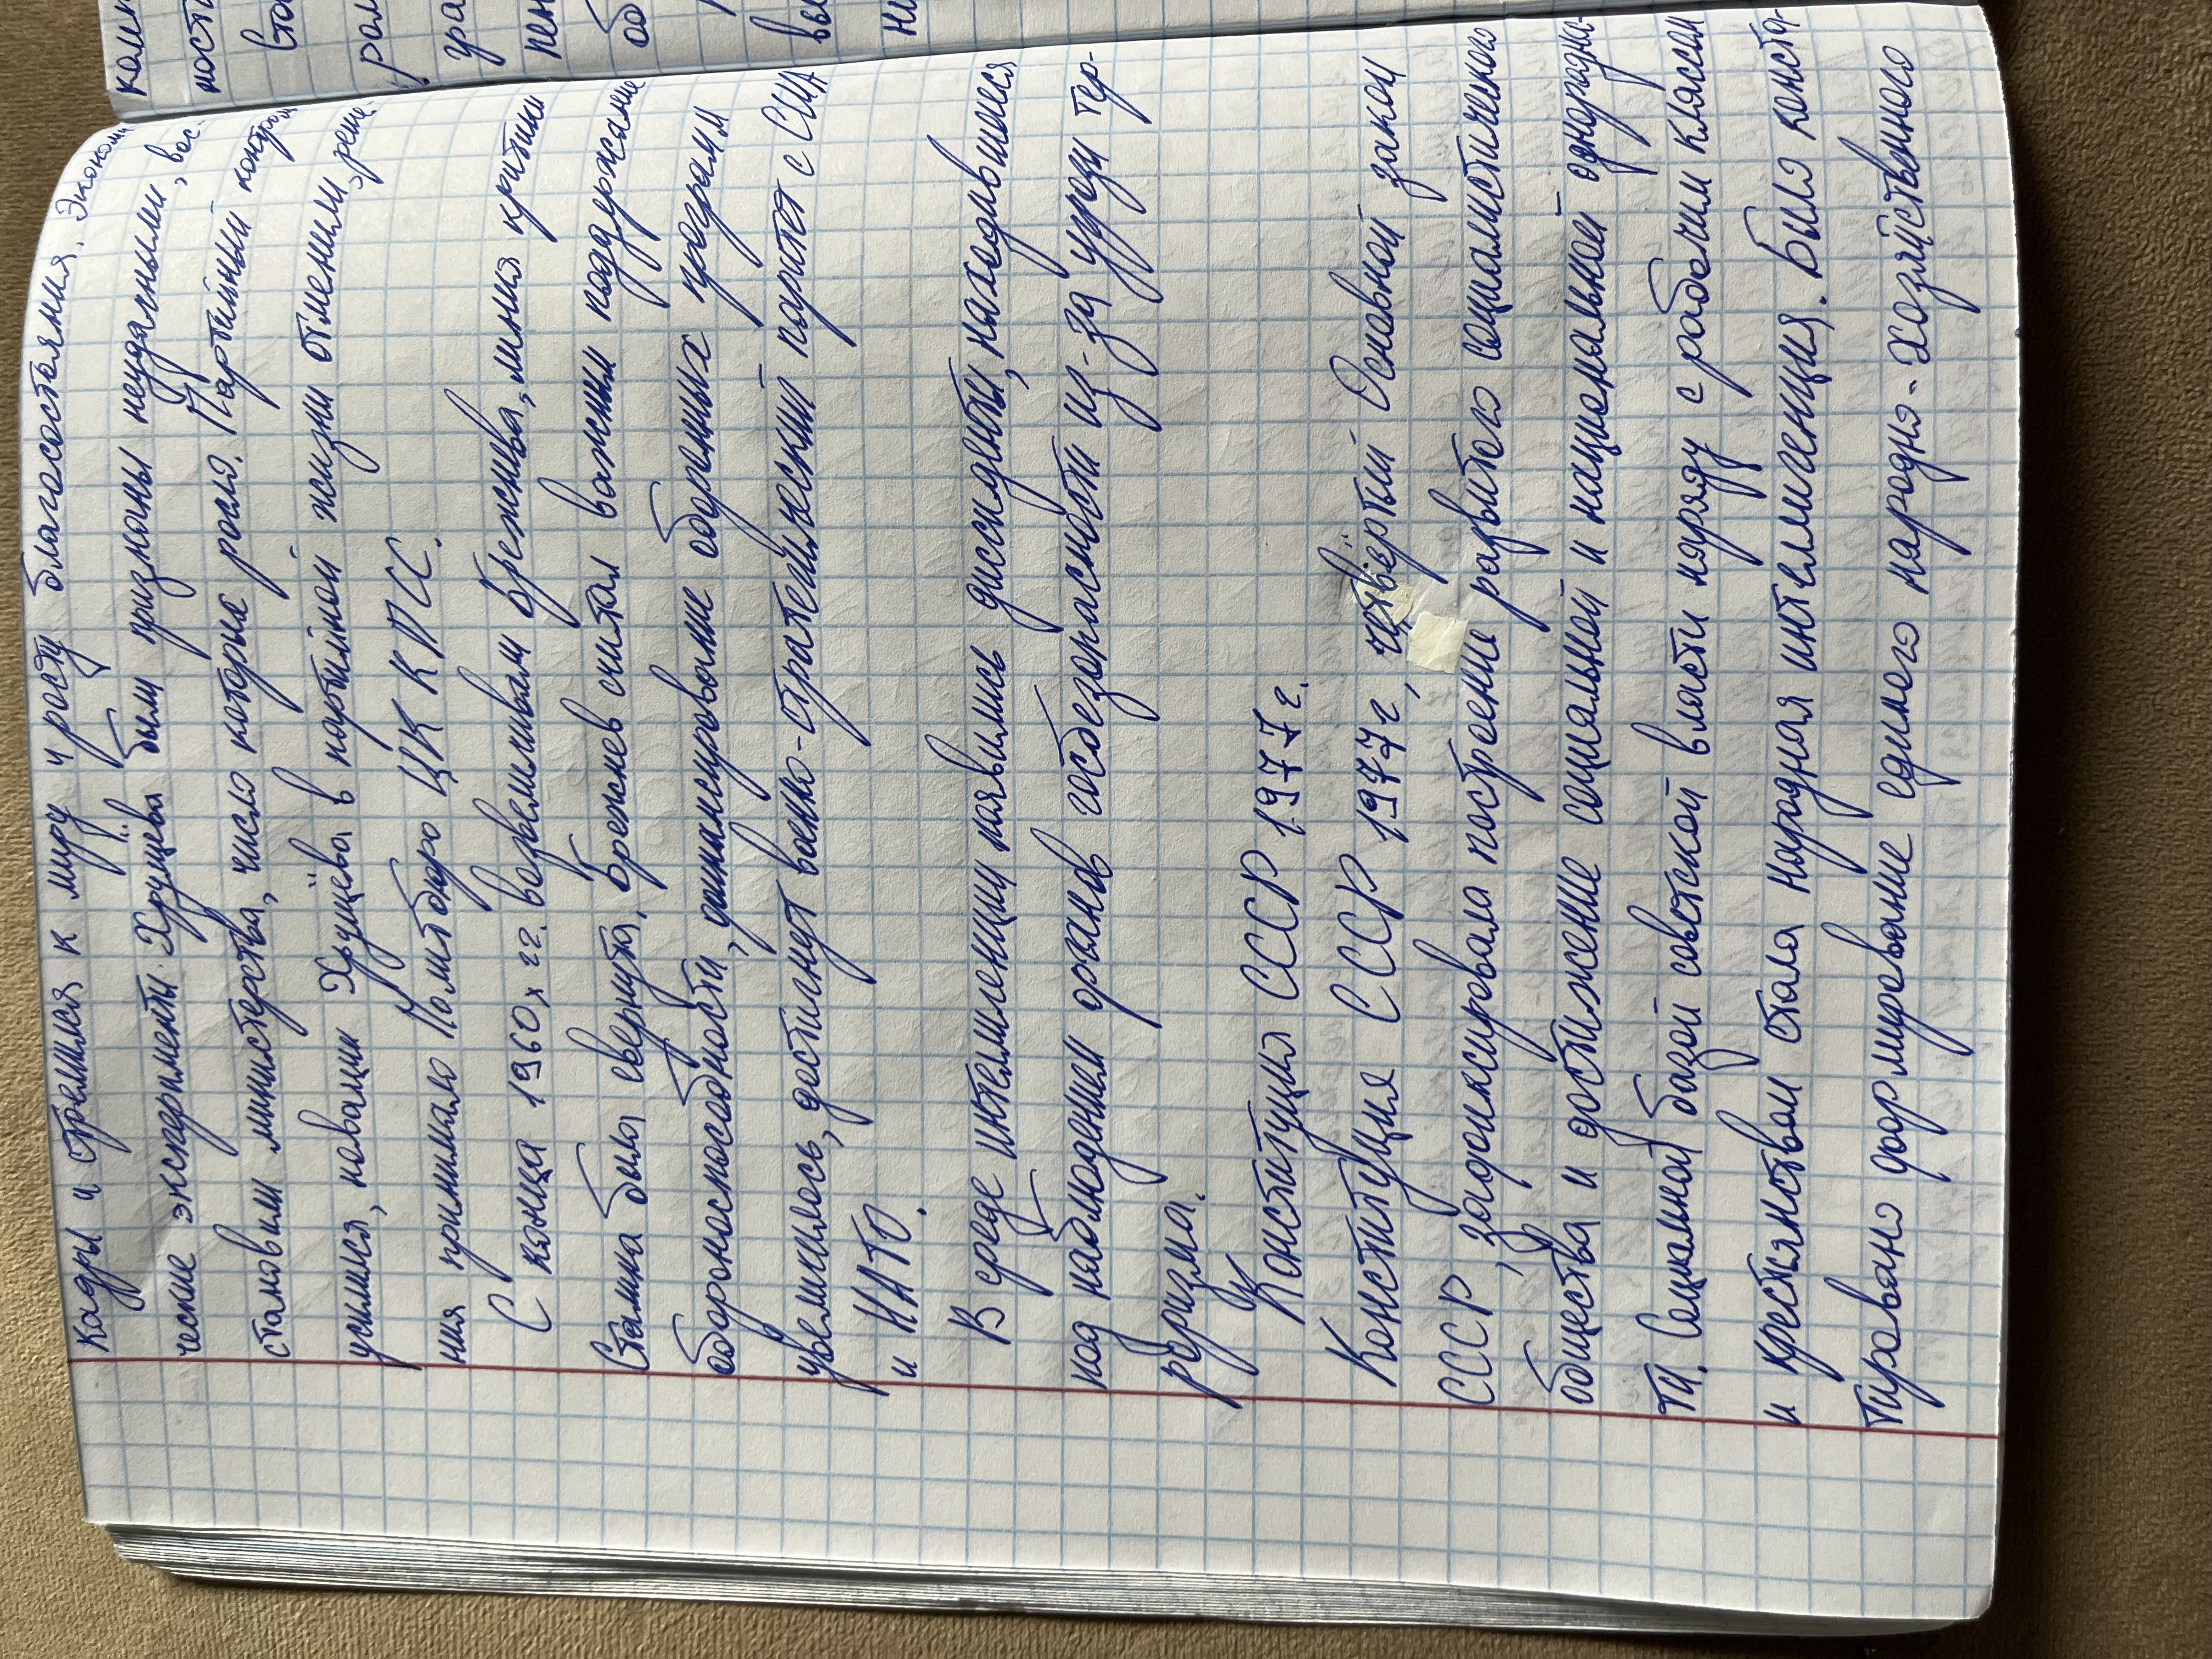 кадры и стремился к миру и росту благосостояния. Экономи-
ческие эксперименты Хрущёва были признаны неудачными, вос-
становили министерства, число которые росло. Партийный контроль
усилился, новации Хрущёва в партийной жизни отменили, реше-
ния принимало Политбюро ЦК КПСС.
С конца 1960х гг. возвеличивали Брежнева, линия критики
Сталина была свернута. Брежнев считал важным поддержание
обороноспособности, финансирование оборонных программ
увеличилось, достигнут военно-стратегический паритет с США
и НАТО.
В среде интеллигенции появились диссиденты, находившиеся
под наблюдением органов госбезопасности из-за угрозы тер-
роризма.
Конституция СССР 1977 г.
Конституция СССР 1977 г, четвёртый Основной закон
СССР, зафиксировала построение развитого социалистичекого
общества и достижение социальной и национальной однородно-
ти. Социалной базой советской власти наряду с рабочим классом
и крестянством стала народная интеллигенция. Было конста-
тировано формирование единого народно-хозяйственного